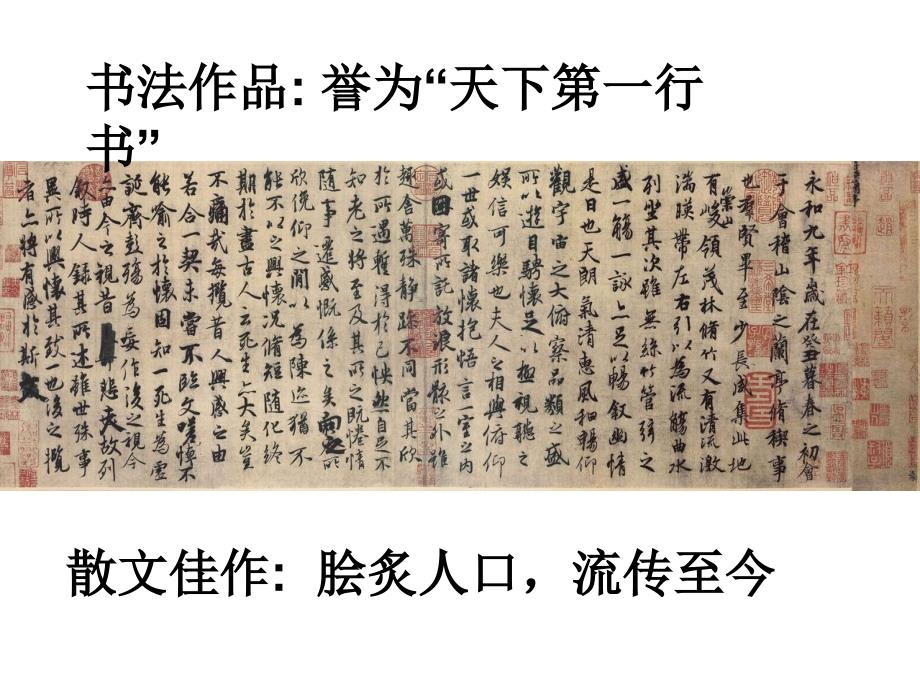 书法作品: 誉为“天下第一行
书”
永和九年歲在癸丑暮春之初會
于會稽山陰之蘭亭脩稧事
也羣賢畢至少長咸集此地
有崇山峻領茂林脩竹又有清流激
湍暎帶左右引以為流觴曲水
列坐其次雖無絲竹管弦之
盛一觴一詠亦足以暢叙幽情
是日也天朗氣清惠風和暢仰
觀宇宙之大俯察品類之盛
所以遊目騁懷足以極視聽之
娛信可樂也夫人之相與俯仰
一世或取諸懷抱悟言一室之內
或因寄所託放浪形骸之外雖
趣舍萬殊靜躁不同當其欣
於所遇暫得於己怏然自足不
知老之將至及其所之既惓情
隨事遷感慨係之矣向之所
欣俛仰之閒以為陳迹猶不
能不以之興懷況脩短隨化終
期於盡古人云死生亦大矣豈
不痛哉每攬昔人興感之由
若合一契未嘗不臨文嗟悼不
能喻之於懷固知一死生為虛
誕齊彭殤為妄作後之視今
亦由今之視昔悲夫故列
叙時人錄其所述雖世殊事
異所以興懷其致一也後之攬
者亦將有感於斯文
散文佳作：脍炙人口，流传至今